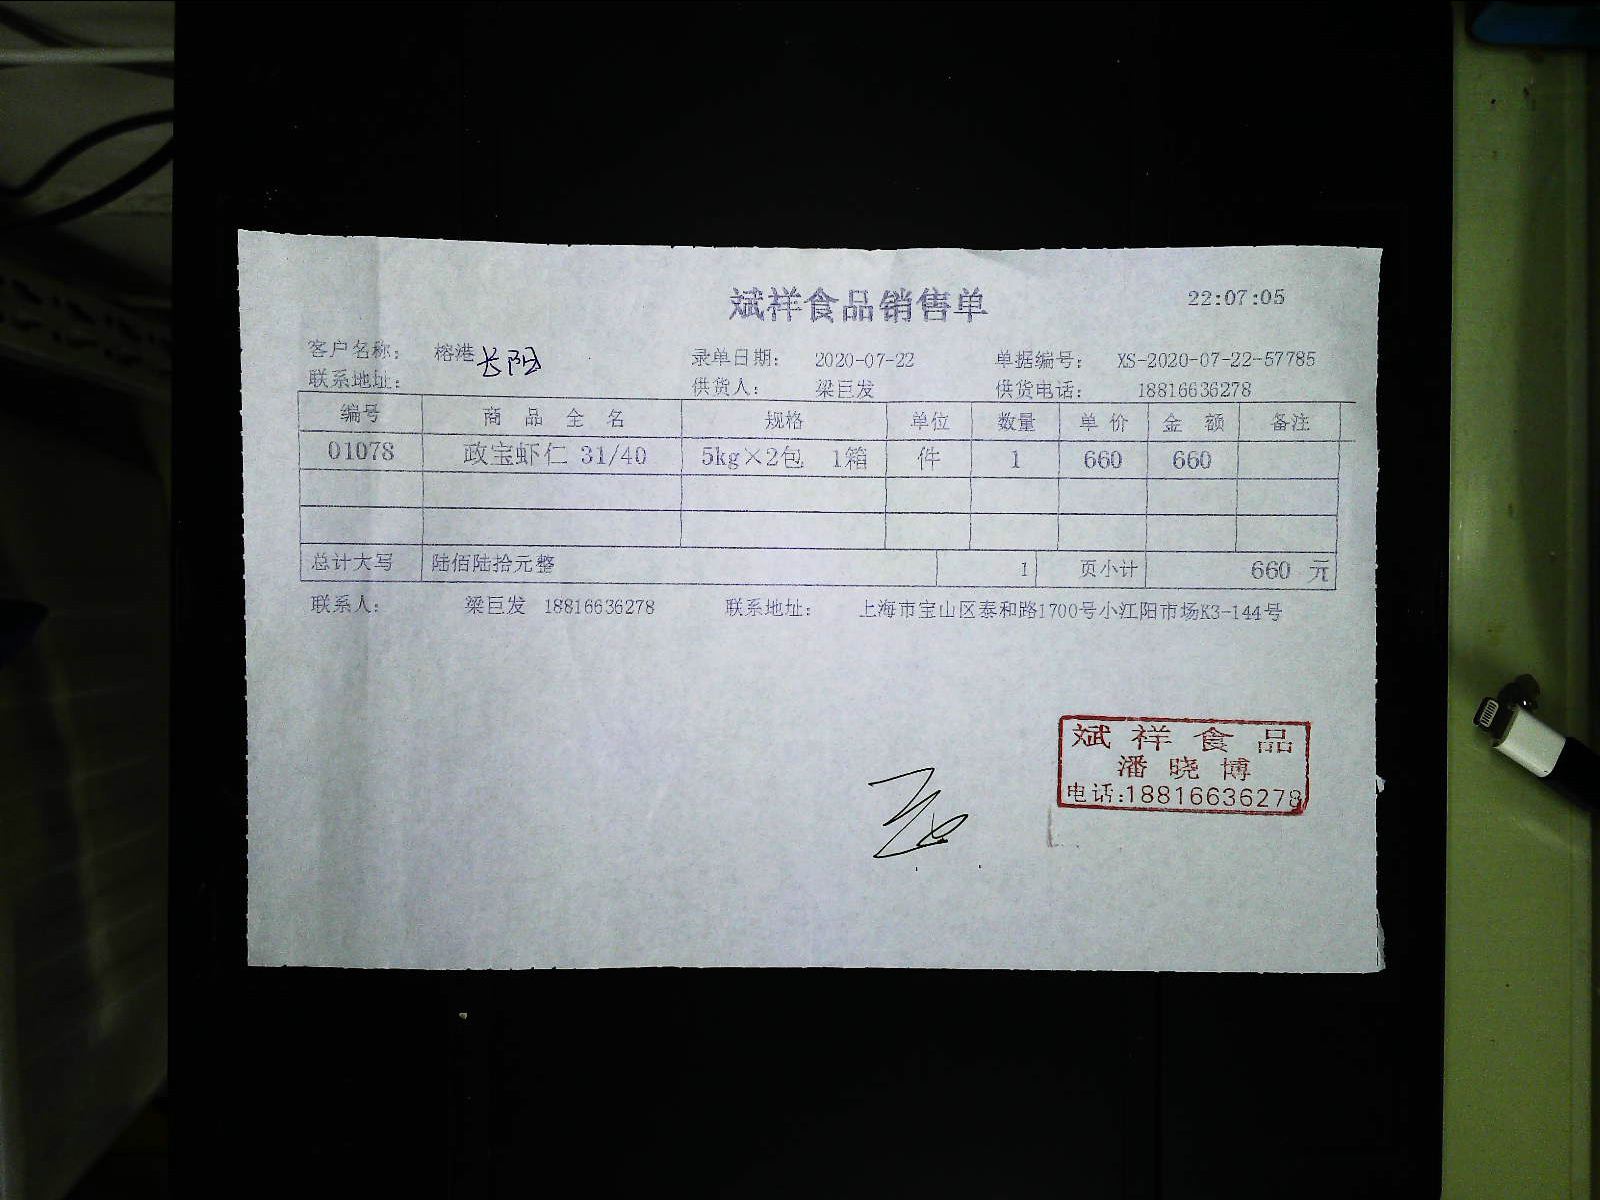 斌祥食品销售单 22:07:05
客户名称: 榕港长阳 录单日期: 2020-07-22 单据编号: XS-2020-07-22-57785
联系地址: 供货人: 梁巨发 供货电话: 18816636278
编号 商品全名 规格 单位 数量 单价 金额 备注
01078 政宝虾仁 31/40 5kg×2包 1箱 件 1 660 660
总计大写 陆佰陆拾元整 1 页小计 660 元
联系人: 梁巨发 18816636278 联系地址: 上海市宝山区泰和路1700号小江阳市场K3-144号
斌祥食品
潘晓博
电话:18816636278